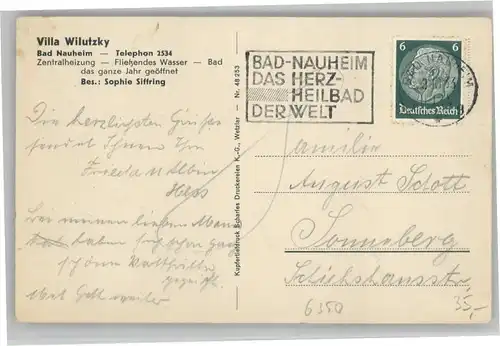 Villa Wilutzky
Bad Nauheim — Telephon 2534
Zentralheizung — Fließendes Wasser — Bad
das ganze Jahr geöffnet
Bes.: Sophie Siffring
Die herzlichsten Grüße
sendet Ihnen
Frieda
Bei meinem lieben Mann
haben sich schon
schöne
Gott weiter
Kupfertiefdruck Scharfes Druckereien K.-G., Wetzlar — Nr. 48 253
BAD-NAUHEIM
DAS HERZ-
HEILBAD
DER WELT
6 6
Deutsches Reich
BAD NAUHEIM
Familie
August Schott
Sonneberg
6350
35,-